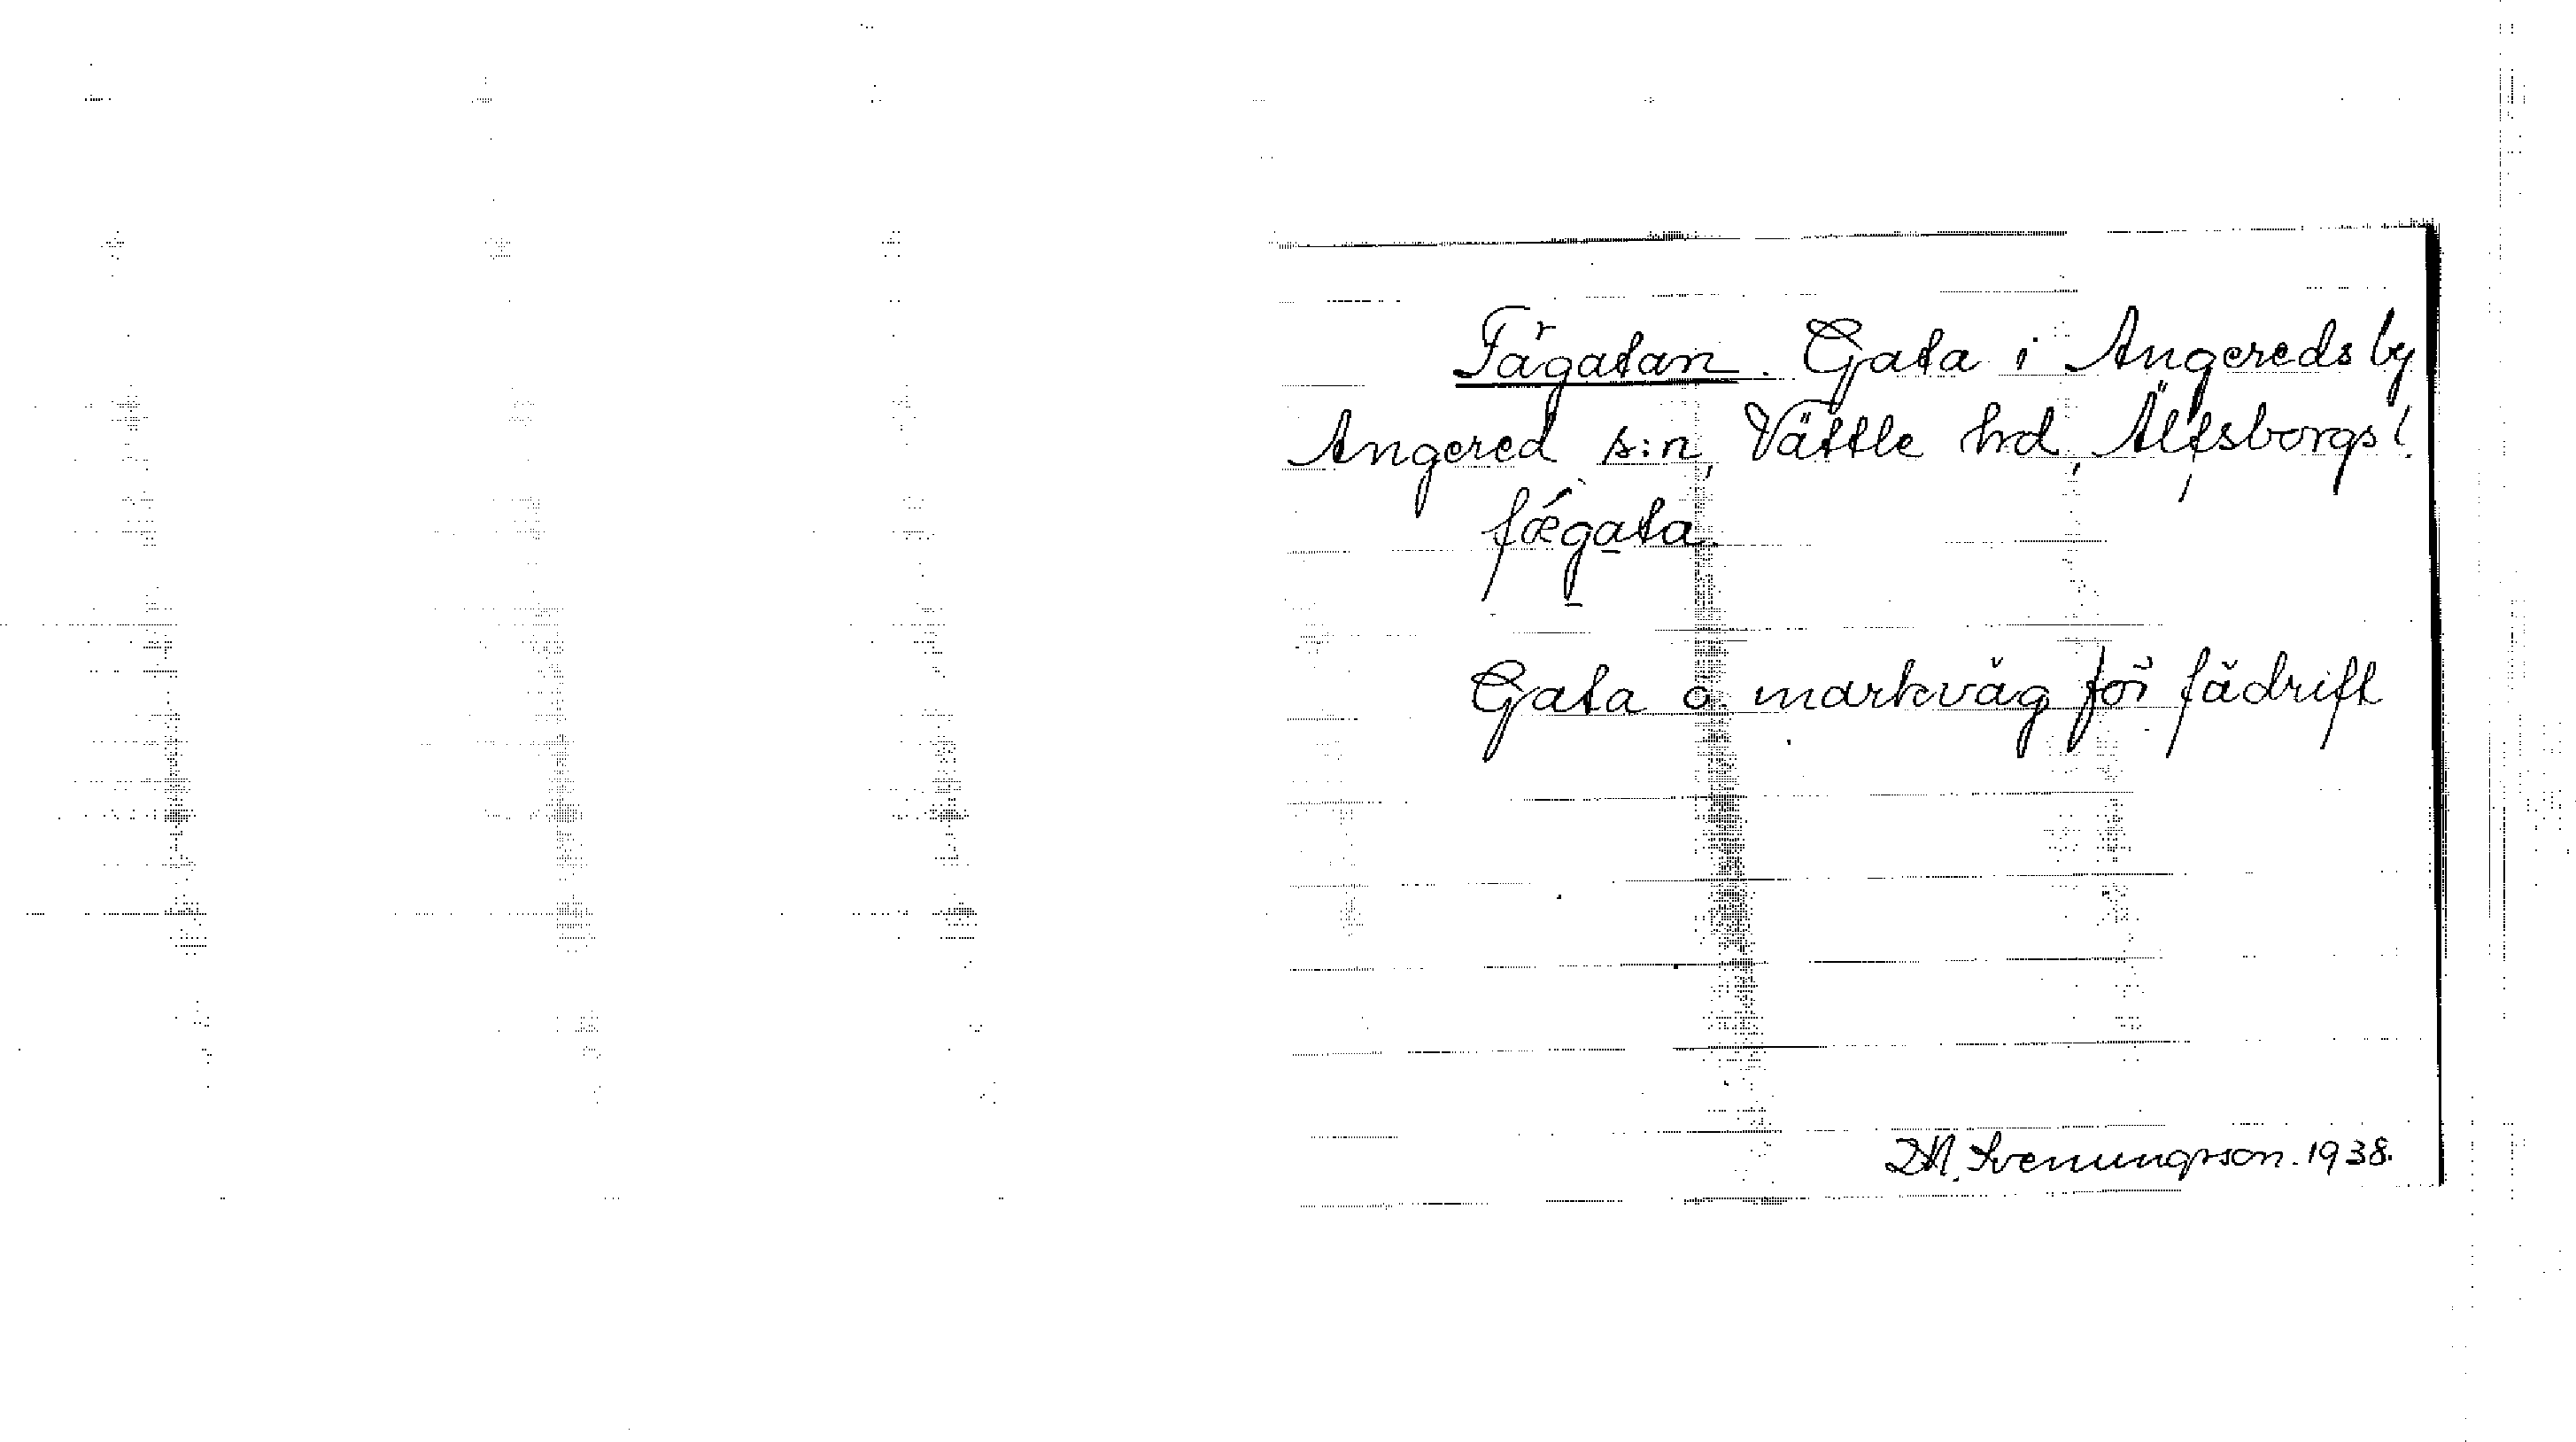 Fägatan. Gata i Angereds by
Angered s:n, Vättle hd, Älfsborgs l.
fǽgata.
Gata o. markväg för fädrift
D.A. Svenungsson. 1938.